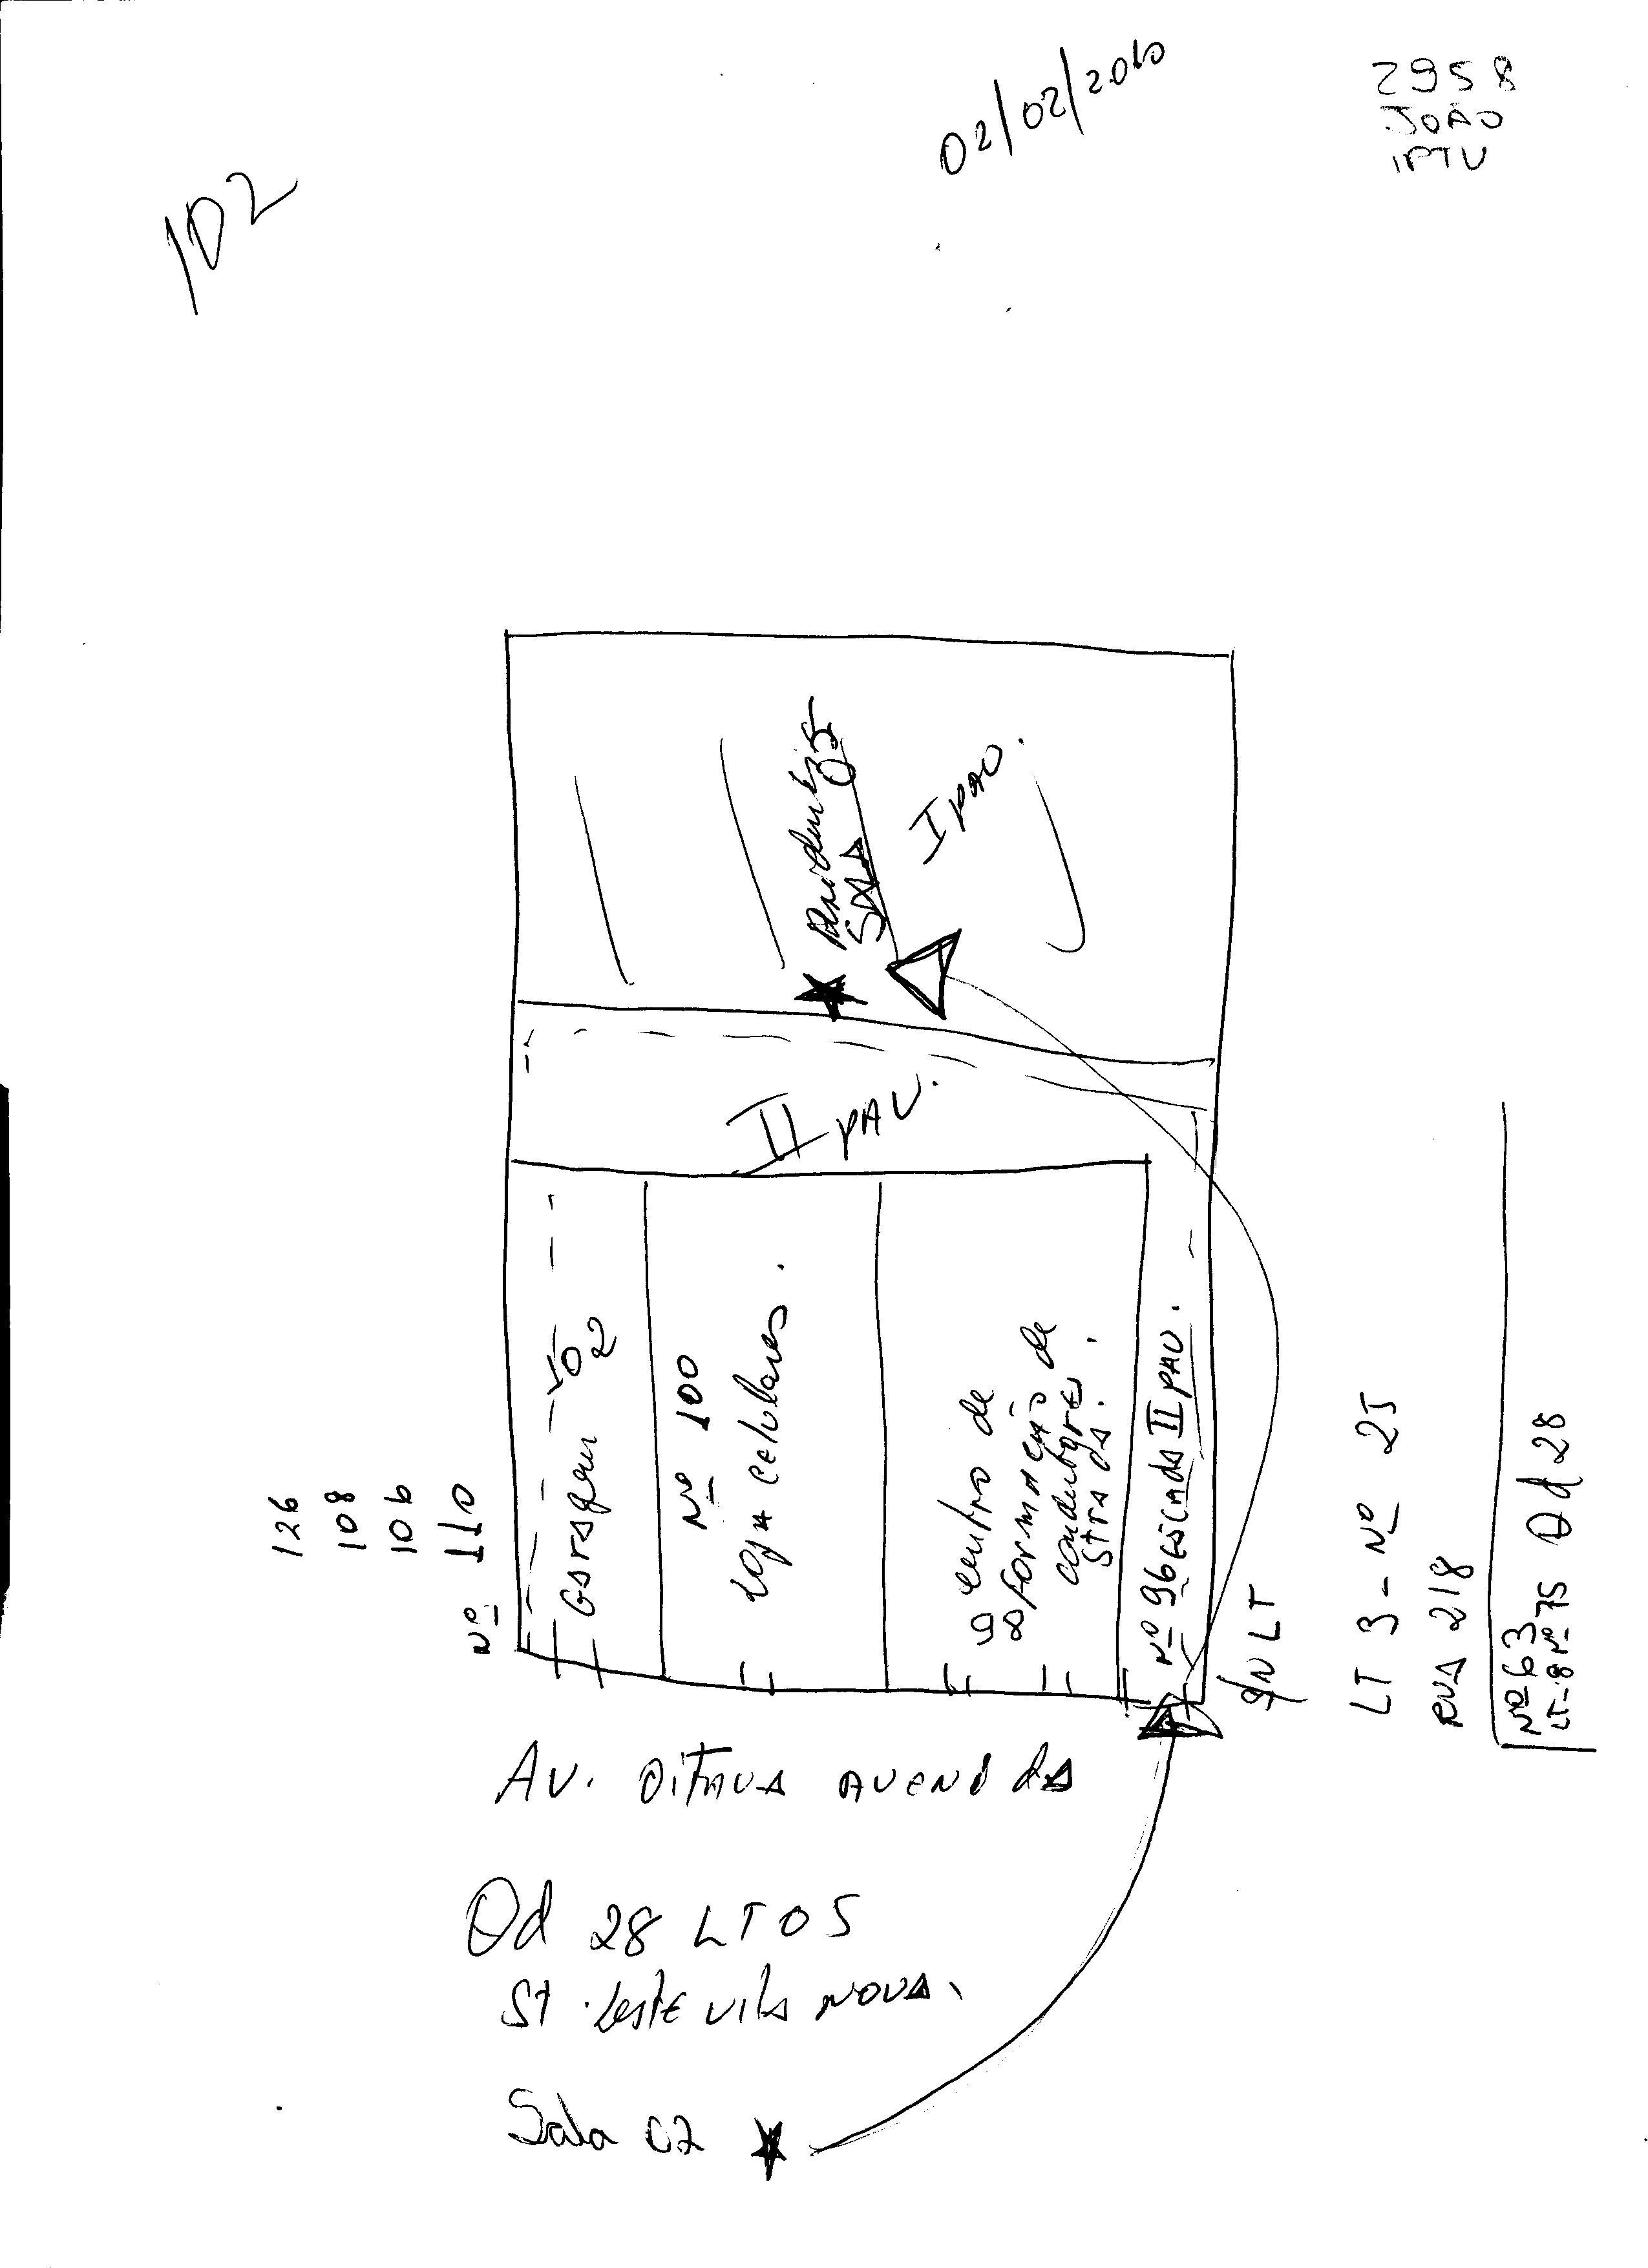 2958
JOÃO
IPTU
02/02/2010
102
Residencia
SALA 05
I PAV.
II PAV.
126
108
106
Nº 110
Garagem
Nº 100
Loja celulares.
centro de
formação de
condutores
Strada.
Nº 96 escada II PAV.
S/N LT
LT 3 - Nº 25
RUA 218
Nº 63
LT-8 Nº 75 Qd 28
Av. oitava avenida
Qd 28 LT 05
St. Leste vila nova.
Sala 02